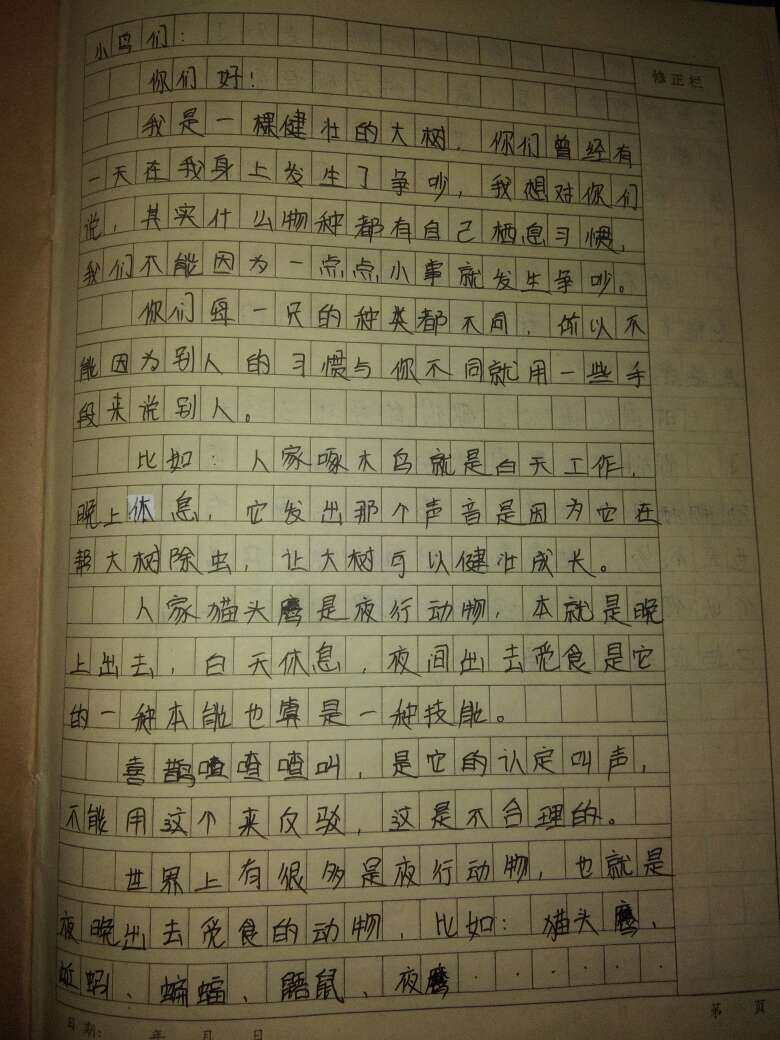 小鸟们:
你们好!
修正栏
我是一棵健壮的大树，你们曾经有
一天在我身上发生了争吵，我想对你们
说，其实什么物种都有自己栖息习惯，
我们不能因为一点点小事就发生争吵。
你们每一只的种类都不同，所以不
能因为别人的习惯与你不同就用一些手
段来说别人。
比如:人家啄木鸟就是白天工作，
晚上休息，它发出那个声音是因为它在
帮大树除虫，让大树可以健壮成长。
人家猫头鹰是夜行动物，本就是晚
上出去，白天休息，夜间出去觅食是它
的一种本能也算是一种技能。
喜鹊喳喳喳叫，是它的认定叫声，
不能用这个来反驳，这是不合理的。
世界上有很多是夜行动物，也就是
夜晚出去觅食的动物，比如:猫头鹰、
蚯蚓、蝙蝠、鼯鼠、夜鹰······
日期: 年 月 日
第 页